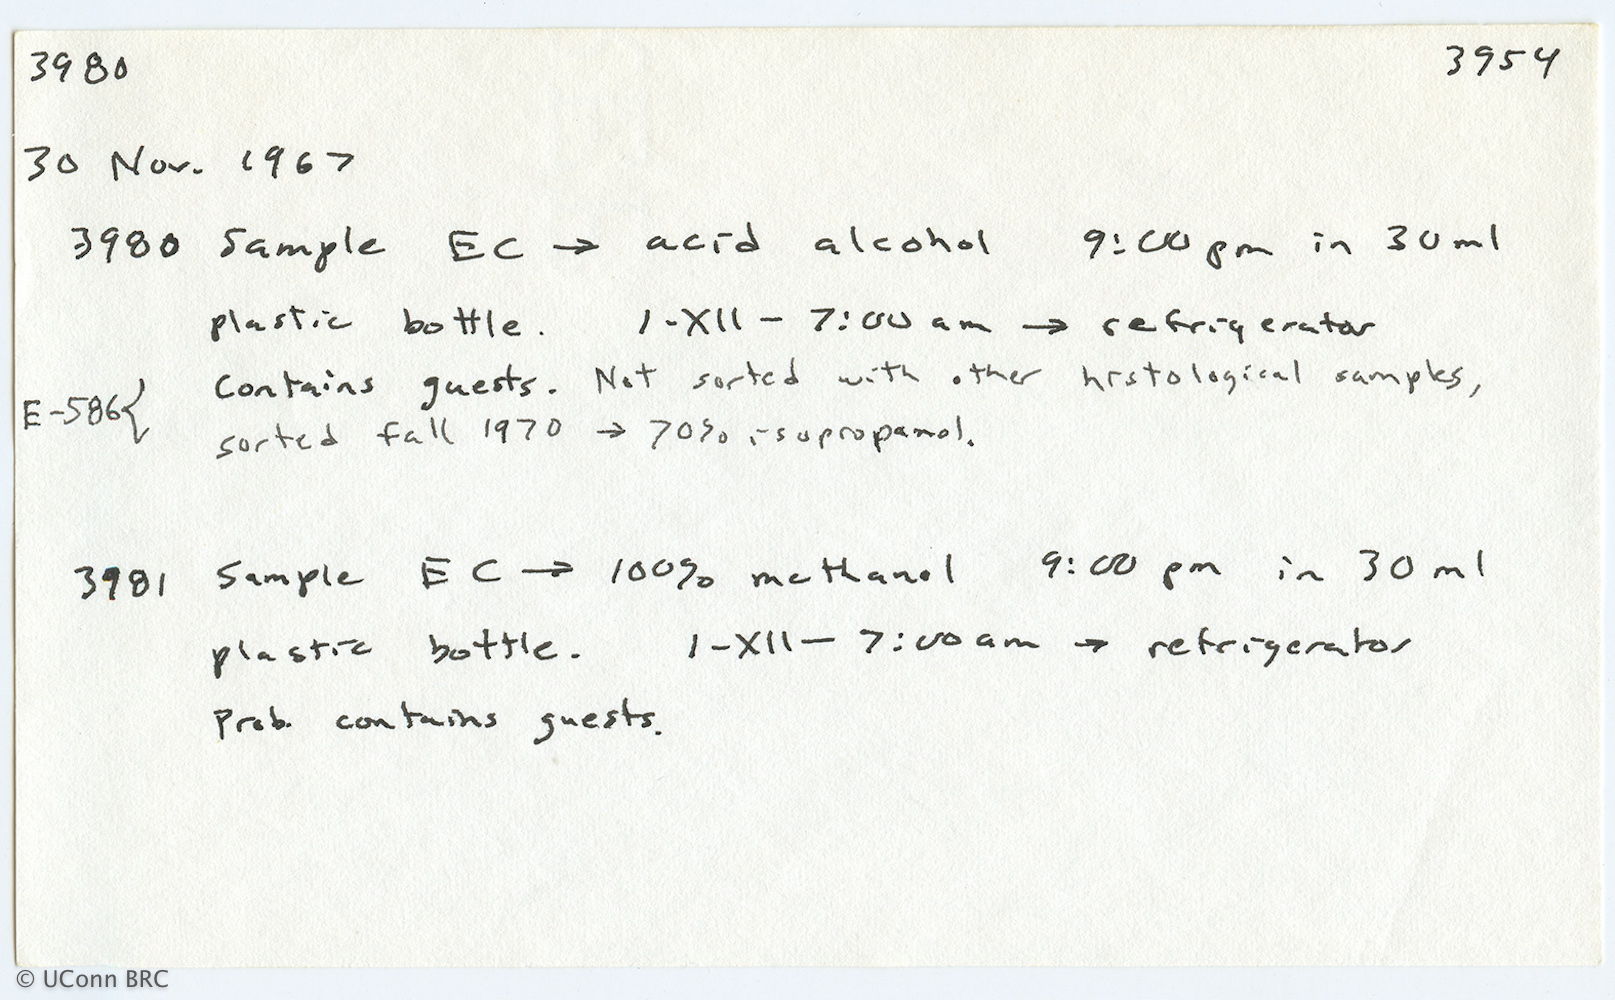 3980 3954
30 Nov. 1967
3980 Sample EC → acid alcohol 9:00 pm in 30 ml
plastic bottle. 1-XII - 7:00 am → refrigerator
Contains guests. Not sorted with other histological samples,
E-586{
sorted fall 1970 → 70% isopropanol.
3981 Sample EC → 100% methanol 9:00 pm in 30 ml
plastic bottle. 1-XII - 7:00 am → refrigerator
Prob. contains guests.
© UConn BRC